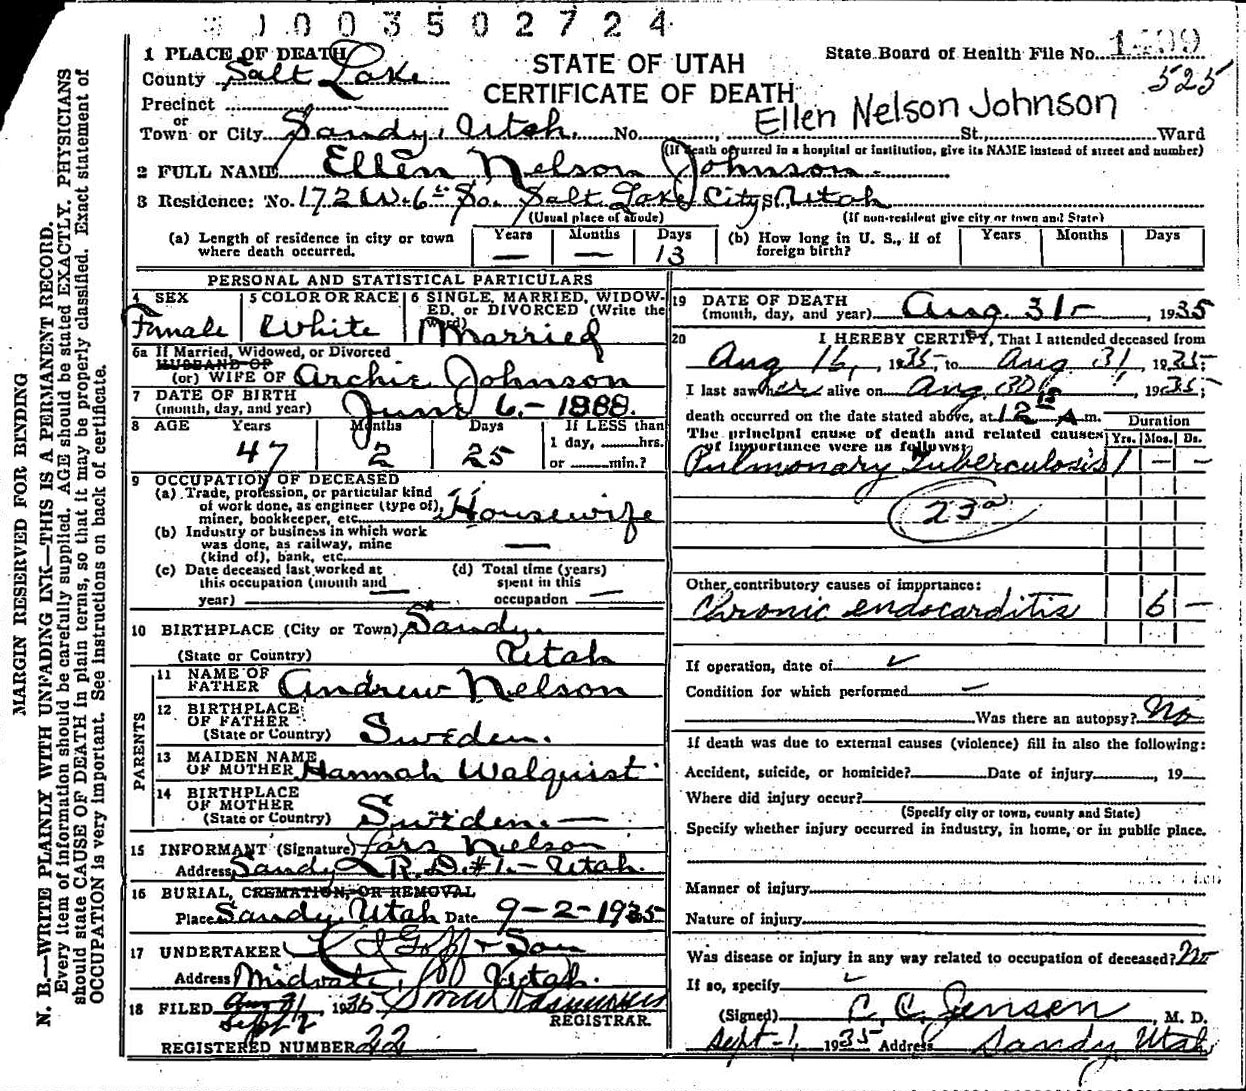 1003502724
1 PLACE OF DEATH
County Salt Lake
Precinct
or
Town or City Sandy, Utah. No. St., Ward
STATE OF UTAH
CERTIFICATE OF DEATH
State Board of Health File No.
525
Ellen Nelson Johnson
(If death occurred in a hospital or institution, give its NAME instead of street and number)
2 FULL NAME Ellen Nelson Johnson.
3 Residence: No. 172 W. 6th So. Salt Lake City St., Utah
(Usual place of abode) (If non-resident give city or town and State)
(a) Length of residence in city or town where death occurred. Years — Months — Days 13
(b) How long in U. S., if of foreign birth? Years Months Days
PERSONAL AND STATISTICAL PARTICULARS
4 SEX Female
5 COLOR OR RACE White
6 SINGLE, MARRIED, WIDOWED, or DIVORCED (Write the word) Married
6a If Married, Widowed, or Divorced
HUSBAND OF
(or) WIFE OF Archie Johnson
7 DATE OF BIRTH
(month, day, and year) June 6. - 1888.
8 AGE Years 47 Months 2 Days 25 If LESS than
1 day, hrs.
or min.?
9 OCCUPATION OF DECEASED
(a) Trade, profession, or particular kind
of work done, as engineer (type of),
miner, bookkeeper, etc. Housewife
(b) Industry or business in which work
was done, as railway, mine
(kind of), bank, etc. —
(c) Date deceased last worked at
this occupation (month and
year) —
(d) Total time (years)
spent in this
occupation —
10 BIRTHPLACE (City or Town) Sandy.
(State or Country) Utah
PARENTS
11 NAME OF
FATHER Andrew Nelson
12 BIRTHPLACE
OF FATHER
(State or Country) Sweden.
13 MAIDEN NAME
OF MOTHER Hannah Walquist
14 BIRTHPLACE
OF MOTHER
(State or Country) Sweden. —
15 INFORMANT (Signature) Lars Nielson
Address Sandy R. D. #1. - Utah.
16 BURIAL, CREMATION, OR REMOVAL
Place Sandy, Utah Date 9-2-1935
17 UNDERTAKER Goff & Son
Address Midvale, Utah.
18 FILED Aug 31, 1935
Sept 2
REGISTRAR.
REGISTERED NUMBER 22
19 DATE OF DEATH
(month, day, and year) Aug. 31 - , 1935
20 I HEREBY CERTIFY, That I attended deceased from
Aug 16, 1935, to Aug 31, 1935;
I last saw her alive on Aug. 30, 1935;
death occurred on the date stated above, at 12 15 A m.
The principal cause of death and related causes
of importance were as follows:
Duration
Yrs. Mos. Ds.
Pulmonary Tuberculosis 1 — —
23a
Other contributory causes of importance:
Chronic endocarditis 6 —
If operation, date of
Condition for which performed —
Was there an autopsy? No
If death was due to external causes (violence) fill in also the following:
Accident, suicide, or homicide? Date of injury , 19
Where did injury occur?
(Specify city or town, county and State)
Specify whether injury occurred in industry, in home, or in public place.
Manner of injury
Nature of injury
Was disease or injury in any way related to occupation of deceased? No
If so, specify
(Signed) C. C. Jensen, M. D.
Sept - 1, 1935 Address Sandy Utah
MARGIN RESERVED FOR BINDING
N. B.—WRITE PLAINLY WITH UNFADING INK—THIS IS A PERMANENT RECORD.
Every item of information should be carefully supplied. AGE should be stated EXACTLY. PHYSICIANS
should state CAUSE OF DEATH in plain terms, so that it may be properly classified. Exact statement of
OCCUPATION is very important. See instructions on back of certificate.